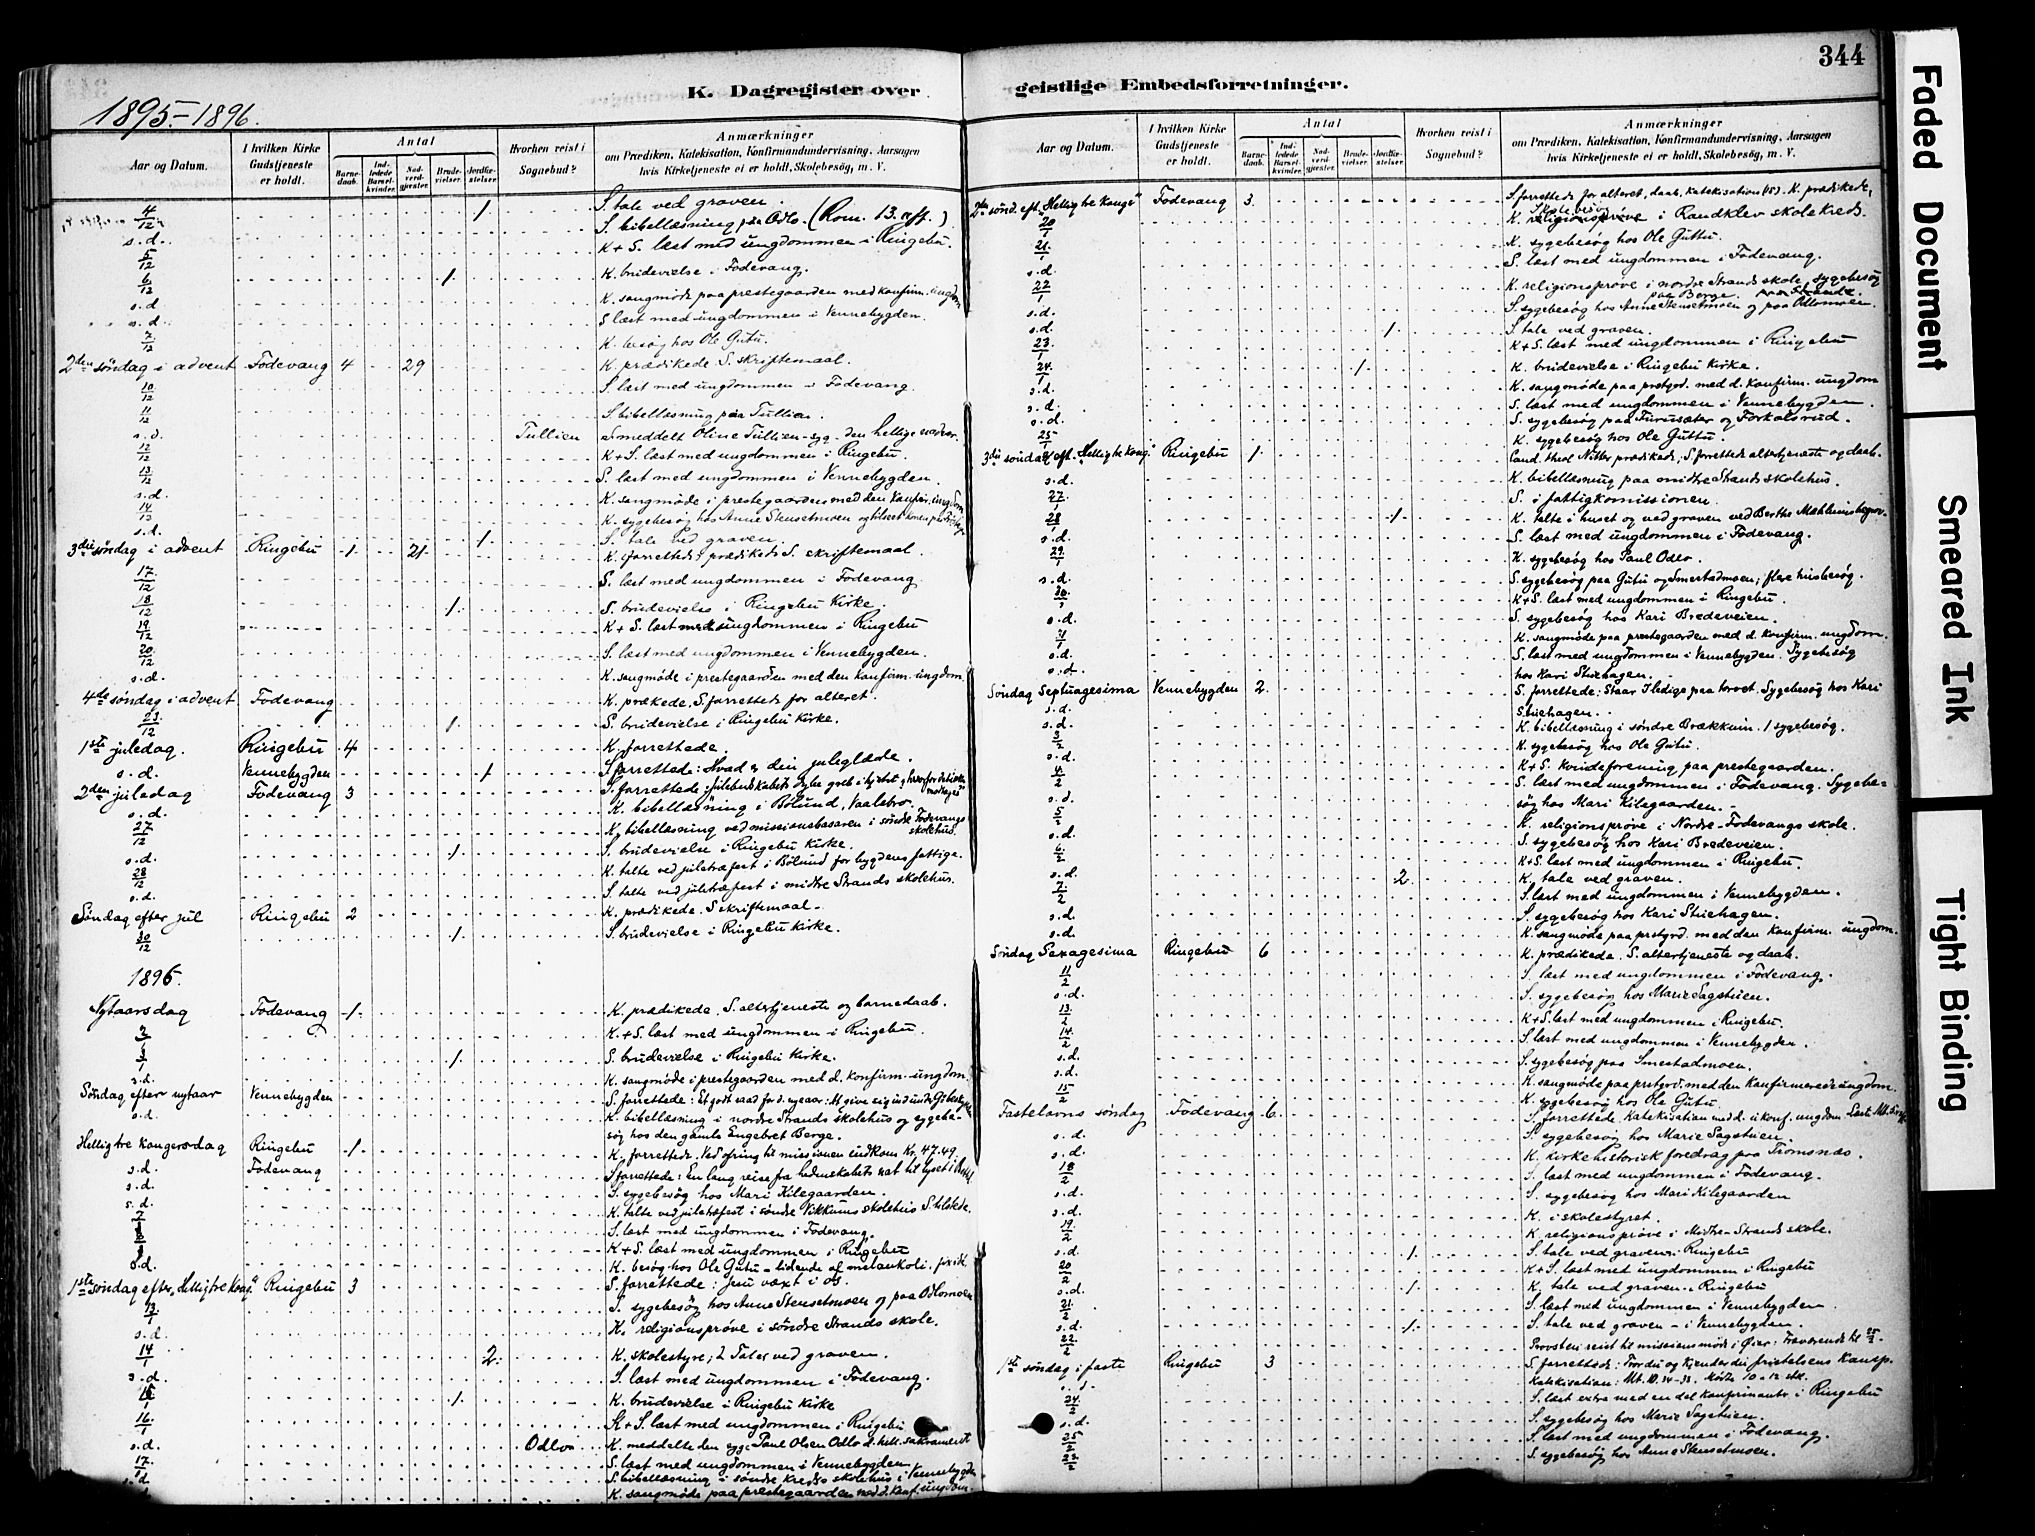 344
1895-1896.
K. Dagregister over geistlige Embedsforretninger.
Aar og Datum.
I hvilken Kirke Gudstjeneste er holdt.
Antal
Barne-daab.
Ind-ledede Barsel-kvinder.
Nad-verd-gjester.
Brude-vielser.
Jordfæ-stelser.
Hvorhen reist i Sognebud?
Anmærkninger
om Prædiken, Katekisation, Konfirmandundervisning, Aarsagen
hvis Kirketjeneste ei er holdt, Skolebesøg, m. V.
4/12 1 S. tale ved graven.
S. bibellæsning paa Odlo. (Rom. 13. )
s.d. K+S. læst med ungdommen i Ringebu.
5/12 1. K. brudevielse i Fodevang.
6/12 K. sangmøde paa prestegaarden med konfirm. ungdom
s.d. S læst med ungdommen i Vennebygden.
s.d.
7/12 K. besøg hos Ole Gutu.
2den søndag i advent Fodevang 4 29 K. prædikede S. skriftemaal.
10/12 S. læst med ungdommen i Fodevang.
11/12 S. bibellæsning paa Tullien.
s.d. Tullien S meddelt Oline Tullien - syg - den hellige nadver.
12/12 K+S. læst med ungdommen i Ringebu.
13/12 S. læst med ungdommen i Vennebygden.
s.d. K. sangmøde i prestegaarden med den konfir. ungdom
14/12 K. sygebesøg hos Anne Stensetmoen
s.d. 1. S. tale ved graven.
3die søndag i advent Ringebu 1. 21. K. forrettede; prædikede S. skriftemaal.
17/12 S. læst med ungdommen i Fodevang
18/12 1. S. brudevielse i Ringebu Kirke.
19/12 K+S. læst med ungdommen i Ringebu
20/12 S. læst med ungdommen i Vennebygden.
s.d. K. sangmøde i prestegaarden med den konfirm. ungdom.
4de søndag i advent Fodevang K. prækede, S. forrettede for alteret.
23/12 1. S. brudevielse i Ringebu Kirke.
1ste juledag. Ringebu 4 K. forrettede.
s.d. Vennebygden 1 S forrettede: Hvad er din juleglæde.
2den juledag Fodevang 3 S. forrettede:
s.d. K. bibellæsning i Bølund, Vaalebro.
27/12 K. bibellæsning ved missionsbasaren i søndre Fodevangs skolehus.
s.d. 1 S. brudevielse i Ringebu Kirke.
28/12 K. talte ved juletræfest i Bølund for bygdens fattige.
s.d. S. talte ved juletræfest i midtre Strands skolehus.
Søndag efter jul Ringebu 2 K. prædikede. S skriftemaal.
30/12 1. S. brudevielse i Ringebu kirke.
1896.
Nytaarsdag Fodevang 1. K. prædikede. S. altertjeneste og barnedaab.
2/1 K.+S. læst med ungdommen i Ringebu.
3/1 1. S. brudevielse i Ringebu Kirke.
s.d. K. sangmøde i prestegaarden med d. konfirm. ungdom.
Søndag efter nytaar Vennebygden S. forrettede: Et godt raad for d. nyeaar:
s.d. K. bibellæsning i nordre Strands skolehus og sygebe-
søg hos den gamle Engebret Berge.
Hellig tre kongersdag Ringebu 1. K. forrettede. Ved ofring til missionen indkom Kr. 47.49.
s.d. Fodevang S forrettede: En lang reise fra hedenskabets nat til lyset i
s.d. S. sygebesøg hos Mari Kilegaarden.
s.d. K. talte ved juletræfest i søndre Vikkums skolehus S. tilstede.
7/1 S. læst med ungdommen i Fodevang.
K+S. læst med ungdommen i Ringebu
s.d. K. besøg hos Ole Gutu - lidende af melankoli.
1ste søndag efter "Hellig tre kong." Ringebu 3 S. forrettede: Jesu vext i os.
13/1 S. sygebesøg hos Anne Stensetmoen og paa Odlomoen
s.d. K. religionsprøve i søndre Strands skole.
14/1 2. K. skolestyre; 2 Taler ved graven.
s.d. S. læst med ungdommen i Fodevang.
15/1 1. K. brudevielse i Ringebu Kirke
16/1 K+S. læst med ungdommen i Ringebu
s.d. Odlo K. meddelte den syge Paul Olsen Odlo d. hell. sakramente
17/1 S. læst med ungdommen i Vennebygden
s.d. S. bibellæsning i søndre kreds skolehus i Vennebygden
K. sangmøde paa prestegaarden med d. konf. ungdom.
Aar og Datum.
I hvilken Kirke Gudstjeneste er holdt.
Antal
Barne-daab.
Ind-ledede Barsel-kvinder.
Nad-verd-gjester.
Brude-vielser.
Jordfæ-stelser.
Hvorhen reist i Sognebud?
Anmærkninger
om Prædiken, Katekisation, Konfirmandundervisning, Aarsagen
hvis Kirketjeneste ei er holdt, Skolebesøg, m. V.
2den sønd. eft. "Hellig tre konge" Fodevang 3. S. forrettede for alteret, daab, katekisation (15). K. prædikede,
20/1 K. Skolebesøg i Randklev skolekreds.
21/1 K. sygebesøg hos Ole Guttu.
s.d. S. læst med ungdommen i Fodevang.
22/1 K. religionsprøve i nordre Strands skole, sygebesøg paa Berge
s.d. S. sygebesøg hos Anne Stensetmoen og paa Odlomoen.
s.d. 1. S. tale ved graven.
23/1 K+S. læst med ungdommen i Ringebu
24/1 1. K. brudevielse i Ringebu Kirke.
s.d. K. sangmøde paa prstgrd. med d. konfirm. ungdom
s.d. S. læst med ungdommen i Vennebygden.
s.d. S. sygebesøg paa Furusæter og Forkalsrud.
25/1 K. sygebesøg hos Ole Guttu.
3die søndag eft. "Hellig tre kong." Ringebu 1. Cand. theol. Nitter prædikede; S. forrettede altertjeneste og daab.
s.d. K. bibellæsning paa midtre Strands skolehus.
27/1 S. i fattigkomissionen.
28/1 1. K. talte i huset og ved graven ved Berthe
s.d. S. læst med ungdommen i Fodevang.
29/1 K. sygebesøg hos Paul Odlo.
s.d. S. sygebesøg paa Gutu og Smestadmoen; flere husbesøg.
30/1 K+S. læst med ungdommen i Ringebu.
s.d. S. sygebesøg hos Kari Bredeveien.
K. sangmøde paa prestegaarden med d. konfirm. ungdom.
s.d. S. læst med ungdommen i Vennebygden. Sygebesøg
s.d. hos Kari Striehagen.
Søndag Septuagesima Vennebygden 2. S. forrettede: Staar I ledige paa torvet. Sygebesøg hos Kari
s.d. Striehagen.
s.d. K. bibellæsning i søndre Brækkum. 1 sygebesøg.
3/2 K. sygebesøg hos Ole Gutu.
s.d. K+S. kvindeforening paa prestegaarden.
4/2 S. læst med ungdommen i Fodevang. Sygebe-
s.d. søg hos Mari Kilegaarden.
5/2 K. religionsprøve i Nordre-Fodevangs skole.
s.d. S. sygebesøg hos Kari Bredeveien.
6/2 K+S. læst med ungdommen i Ringebu.
s.d. 2. K. tale ved graven.
7/2 S. læst med ungdommen i Vennebygden.
s.d. S. sygebesøg hos Kari Striehagen.
s.d. K. sangmøde paa prstgrd. med den konfirm. ungdom.
Søndag Sexagesima Ringebu 6 K. prædikede. S. altertjeneste og daab.
11/2 S. læst med ungdommen i Fodevang.
s.d. S. sygebesøg hos Marie Sagstuen.
13/2 K+S. læst med ungdommen i Ringebu.
14/2 S. læst med ungdommen i Vennebygden.
s.d. S. sygebesøg paa Smestadmoen.
s.d. K. sangmøde paa prstgrd. med den konfirmerede ungdom.
15/2 K. sygebesøg hos Ole Gutu.
Fastelavns søndag Fodevang 6. S. forrettede. katekisation med d. konf. ungdom
s.d. S. sygebesøg hos Marie Sagstuen.
s.d. K. kirkehistorisk foredrag paa Tromsnes.
18/2 S. læst med ungdommen i Fodevang.
s.d. S. sygebesøg hos Mari Kilegaarden
s.d. K. i skolestyret.
19/2 K. religionsprøve i Midtre-Strands skole.
s.d. 1. S. tale ved graven i Ringebu
20/2 K+S. læst med ungdommen i Ringebu
s.d. 1. K. tale ved graven i Ringebu
21/2 S. læst med ungdommen i Vennebygden.
s.d. 1. S. tale ved graven - i Vennebygden.
22/2 Provsten reist til missionsmøde i Øier. Fraværende til 25/2.
1ste søndag i faste Ringebu 3 S. forrettede: Tror du og kjender du fristelsens kamp.
s.d. Katekisation: Mt. 10.34-38.
24/2 S. læst extra med en del konfirmanter i Ringebu
s.d. S. sygebesøg hos Marie Sagstuen.
25/2 S. læst med ungdommen i Fodevang.
S. sygebesøg hos Anne Stensetmoen.
Faded Document
Smeared Ink
Tight Binding